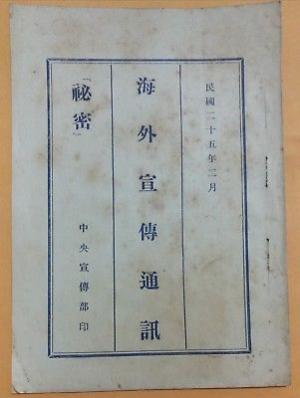 民國二十五年三月
海外宣傳通訊
『祕密』
中央宣傳部印